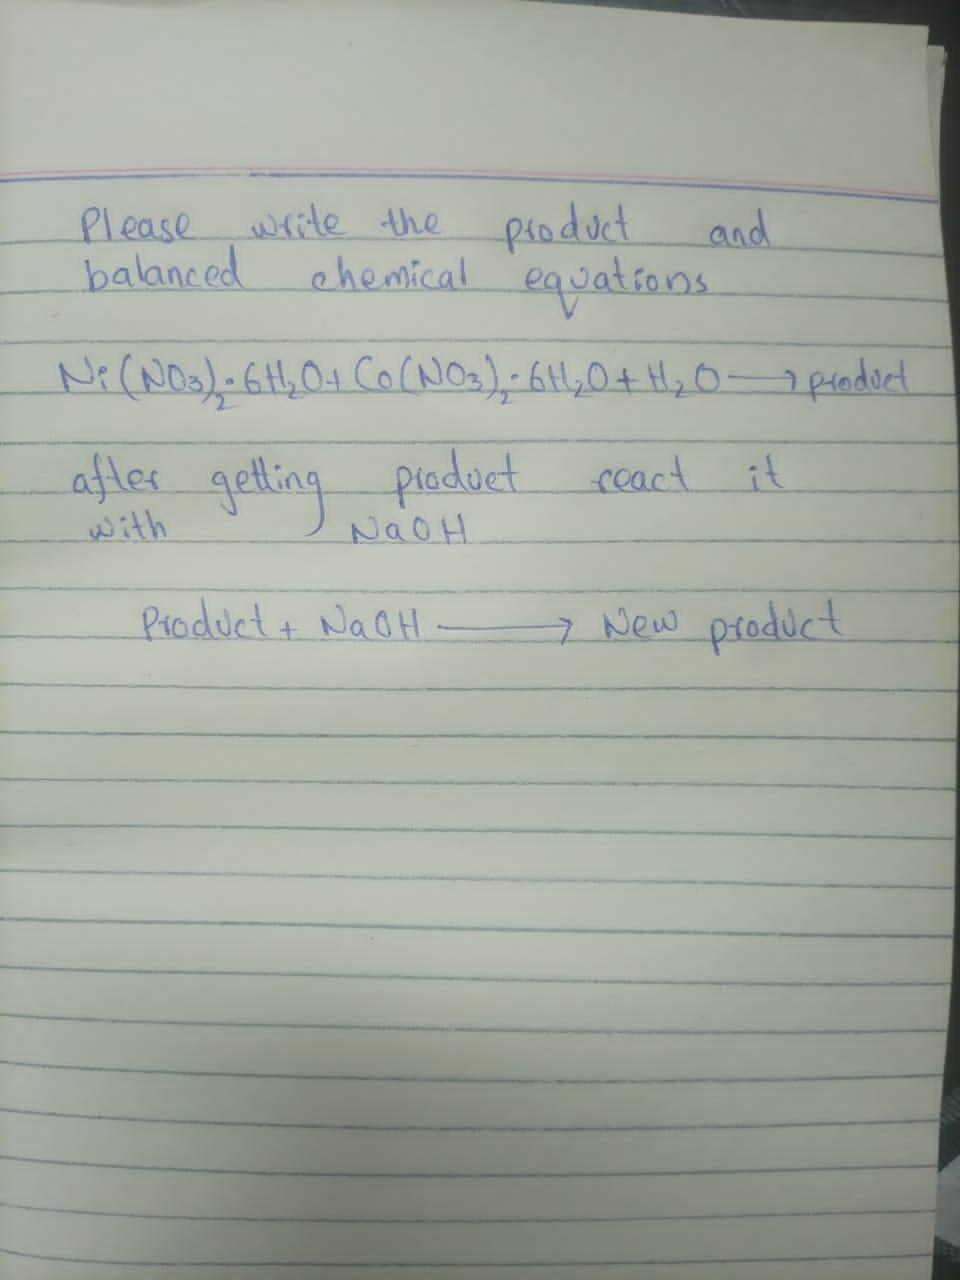 Please write the product and
balanced chemical equations
Ni(NO3)2·6H2O+ Co(NO3)2·6H2O+H2O⟶product
after getting product react it
with NaOH
Product + NaOH ⟶ New product